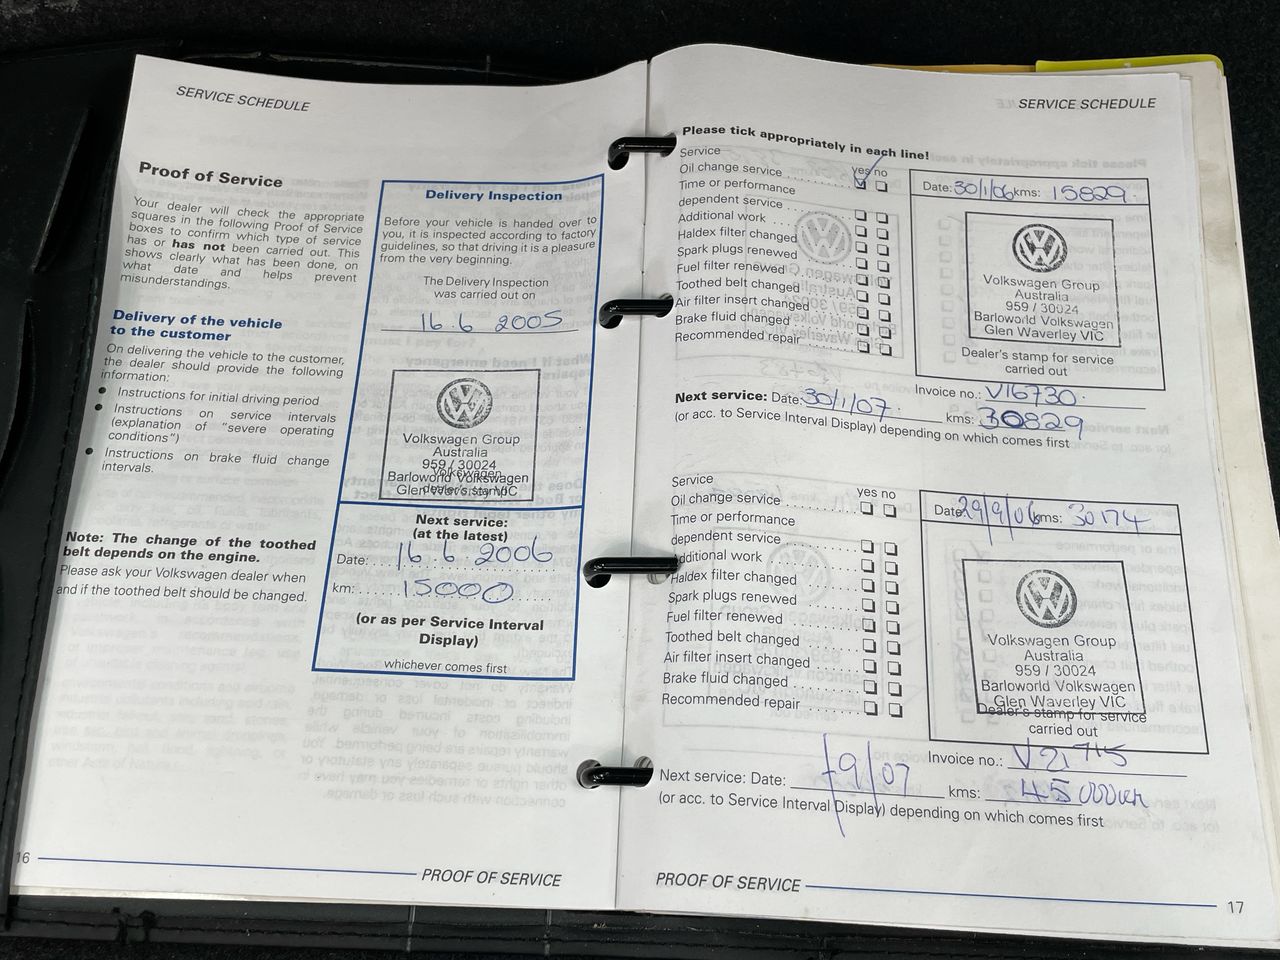 SERVICE SCHEDULE
Proof of Service
Your dealer will check the appropriate
squares in the following Proof of Service
boxes to confirm which type of service
has or has not been carried out. This
shows clearly what has been done, on
what date and helps prevent
misunderstandings.
Delivery of the vehicle
to the customer
On delivering the vehicle to the customer,
the dealer should provide the following
information:
• Instructions for initial driving period
• Instructions on service intervals
(explanation of "severe operating
conditions")
• Instructions on brake fluid change
intervals.
Note: The change of the toothed
belt depends on the engine.
Please ask your Volkswagen dealer when
and if the toothed belt should be changed.
Delivery Inspection
Before your vehicle is handed over to
you, it is inspected according to factory
guidelines, so that driving it is a pleasure
from the very beginning.
The Delivery Inspection
was carried out on
16.6.2005
Volkswagen Group
Australia
959 / 30024
Volkswagen
Barloworld Volkswagen
Glen Waverley VIC
dealer's stamp
Next service:
(at the latest)
Date: 16.6.2006
km: 15000
(or as per Service Interval
Display)
whichever comes first
16
PROOF OF SERVICE
SERVICE SCHEDULE
Please tick appropriately in each line!
Service
yes no
Oil change service
Time or performance
dependent service
Additional work
Haldex filter changed
Spark plugs renewed
Fuel filter renewed
Toothed belt changed
Air filter insert changed
Brake fluid changed
Recommended repair
Date: 30/1/06 kms: 15829
Volkswagen Group
Australia
959 / 30024
Barloworld Volkswagen
Glen Waverley VIC
Dealer's stamp for service
carried out
Invoice no.: V16730
Next service: Date: 30/1/07 kms: 30829
(or acc. to Service Interval Display) depending on which comes first
Service
yes no
Oil change service
Time or performance
dependent service
Additional work
Haldex filter changed
Spark plugs renewed
Fuel filter renewed
Toothed belt changed
Air filter insert changed
Brake fluid changed
Recommended repair
Date: 29/9/06 kms: 30174
Volkswagen Group
Australia
959 / 30024
Barloworld Volkswagen
Glen Waverley VIC
Dealer's stamp for service
carried out
Invoice no.: V21715
Next service: Date: /9/07 kms: 45000
(or acc. to Service Interval Display) depending on which comes first
PROOF OF SERVICE
17